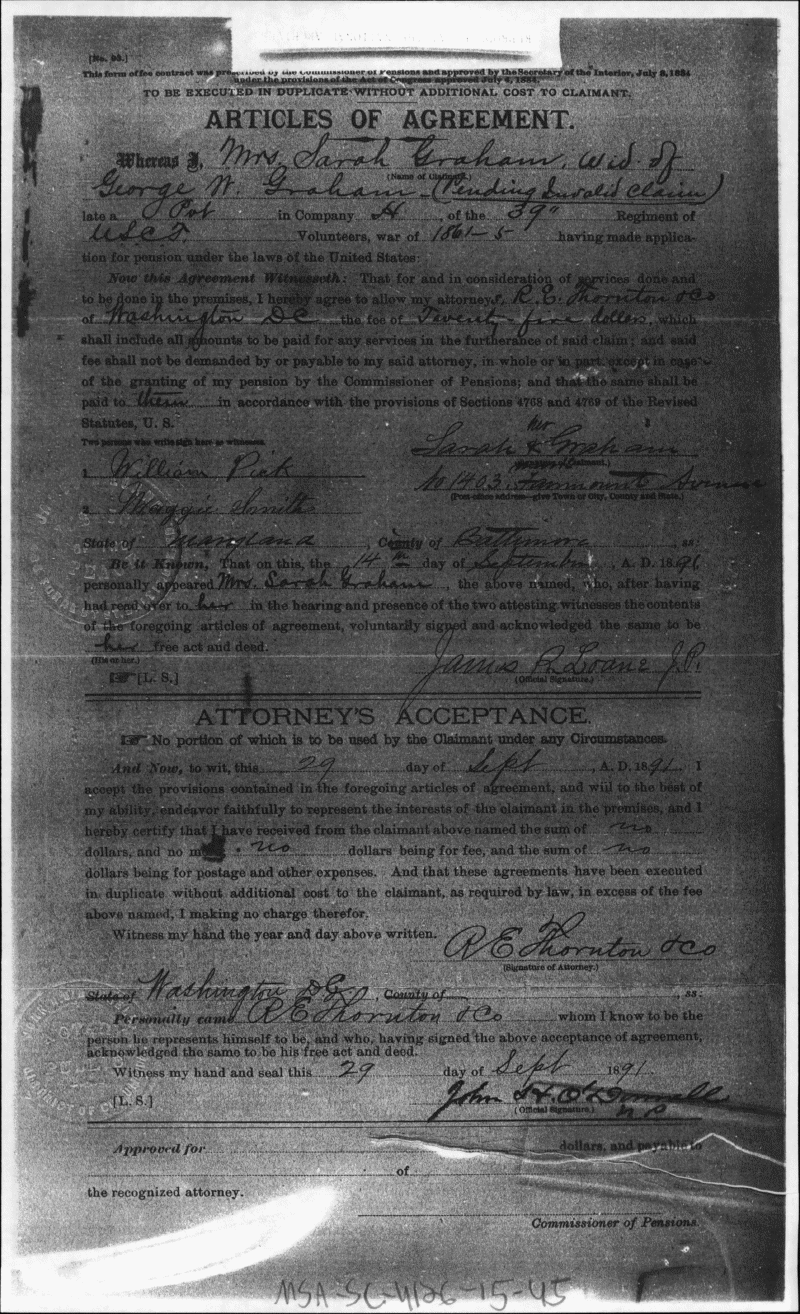 [No. 98.]
This form of fee contract was prescribed by the Commissioner of Pensions and approved by the Secretary of the Interior, July 8, 1884
under the provisions of the Act of Congress approved July 4, 1884.
TO BE EXECUTED IN DUPLICATE WITHOUT ADDITIONAL COST TO CLAIMANT.
ARTICLES OF AGREEMENT.
Whereas I, Mrs. Sarah Graham, wid. of
(Name of Claimant.)
George W. Graham (Pending Invalid Claim)
late a Pvt in Company H, of the 39" Regiment of
U.S.C.T. Volunteers, war of 1861-5 having made applica-
tion for pension under the laws of the United States:
Now this Agreement Witnesseth: That for and in consideration of services done and
to be done in the premises, I hereby agree to allow my attorneys, R. E. Thornton & Co
of Washington DC the fee of Twenty-five dollars, which
shall include all amounts to be paid for any services in the furtherance of said claim; and said
fee shall not be demanded by or payable to my said attorney, in whole or in part, except in case
of the granting of my pension by the Commissioner of Pensions; and that the same shall be
paid to them in accordance with the provisions of Sections 4768 and 4769 of the Revised
Statutes, U. S.
Two persons who write sign here as witnesses.
her
Sarah x Graham
(Claimant.)
1 William Pick
No 1403 Fairmount Avenue
(Post-office address—give Town or City, County and State.)
2 Maggie Smith
State of Maryland, County of Baltimore, ss:
Be it Known, That on this, the 14th day of September, A. D. 1891
personally appeared Mrs. Sarah Graham, the above named, who, after having
had read over to her in the hearing and presence of the two attesting witnesses the contents
of the foregoing articles of agreement, voluntarily signed and acknowledged the same to be
her free act and deed.
(His or her.)
James R. Loane J.P.
(Official Signature.)
[L. S.]
ATTORNEY'S ACCEPTANCE.
No portion of which is to be used by the Claimant under any Circumstances.
And Now, to wit, this 29 day of Sept, A. D. 1891. I
accept the provisions contained in the foregoing articles of agreement, and will to the best of
my ability, endeavor faithfully to represent the interests of the claimant in the premises, and I
hereby certify that I have received from the claimant above named the sum of no
dollars, and no more. no dollars being for fee, and the sum of no
dollars being for postage and other expenses. And that these agreements have been executed
in duplicate without additional cost to the claimant, as required by law, in excess of the fee
above named, I making no charge therefor.
Witness my hand the year and day above written.
R E Thornton & Co
(Signature of Attorney.)
State of Washington D.C., County of , ss:
Personally came R E Thornton & Co whom I know to be the
person he represents himself to be, and who, having signed the above acceptance of agreement,
acknowledged the same to be his free act and deed.
Witness my hand and seal this 29 day of Sept 1891
[L. S.]
John H. O'Donnell
(Official Signature.)
N P
Approved for dollars, and payable to
of
the recognized attorney.
Commissioner of Pensions.
MSA-SC-4126-15-45